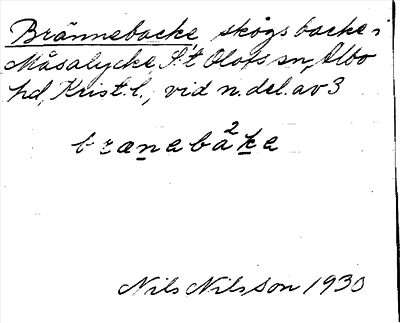 Brännebacke skogsbacke i
Måsalycke, S:t Olofs sn, Albo
hd, Krist. l., vid n. del. av 3
brænaba²ka
Nils Nilsson 1930